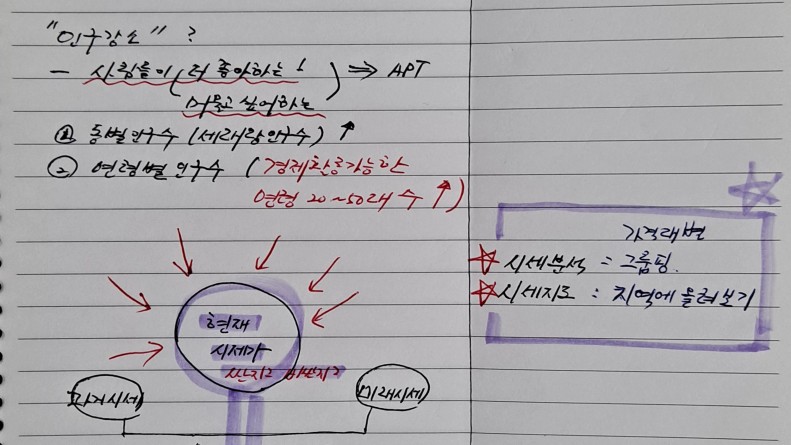 "인구감소" ?
- 사람들이 (더 좋아하는!
머물고 싶어하는) ⇒ APT
① 동별인구수 (세대당인구수) ↑
② 연령별 인구수 (경제활동가능한
연령 20~50대 수 ↑)
가격대별
☆ 시세분석 = 그룹핑.
☆ 시세지도 : 지역에 올려보기
현재
시세가
싼지? 비싼지?
과거시세
미래시세